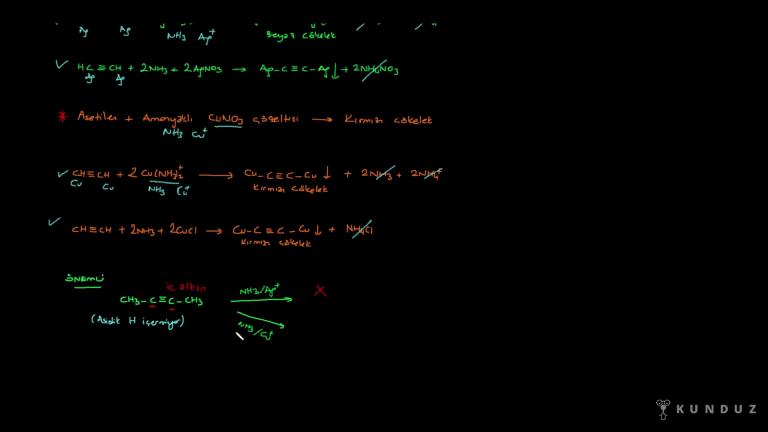 Ag Ag NH3 Ag+ Beyaz Çökelek
HC≡CH + 2NH3 + 2AgNO3 → Ag-C≡C-Ag↓ + 2NH4NO3
Ag Ag
* Asetilen + Amonyaklı CuNO3 çözeltisi → Kırmızı çökelek
NH3 Cu+
CH≡CH + 2Cu(NH3)2+ → Cu-C≡C-Cu↓ + 2NH3 + 2NH4+
Cu Cu NH3 Cu+ Kırmızı çökelek
CH≡CH + 2NH3 + 2CuCl → Cu-C≡C-Cu↓ + NH4Cl
Kırmızı çökelek
ÖNEMLİ
iç alkin
CH3-C≡C-CH3 NH3/Ag+ X
(Asidik H içermiyor) NH3/Cu+
KUNDUZ